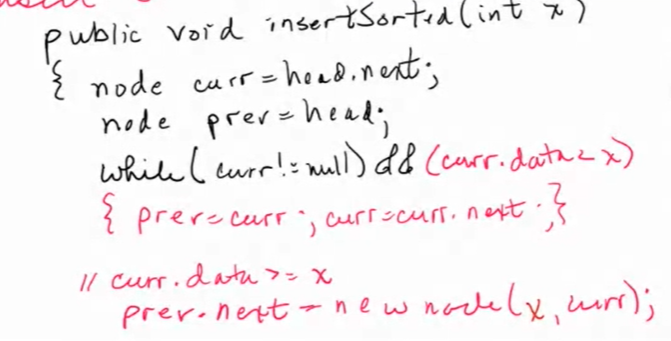 public void insertSorted(int x)
{ node curr=head.next;
node prev=head;
while(curr!=null) && (curr.data<x)
{ prev=curr; curr=curr.next;}
// curr.data>=x
prev.next=new node(x,curr);